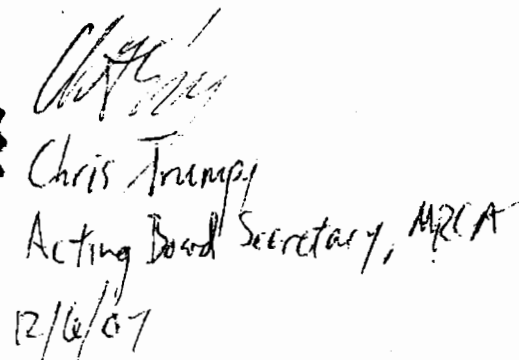 Chris Trumpy
Acting Board Secretary, MRCA
12/6/07